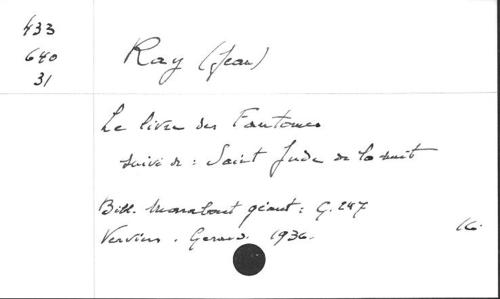 433
640
31
Ray (Jean)
Le livre des Fantomes
suivi de : Saint Jude de la nuit
Bibl. Marabout géant : G. 247
Verviers. Gerard. 1936.
16.